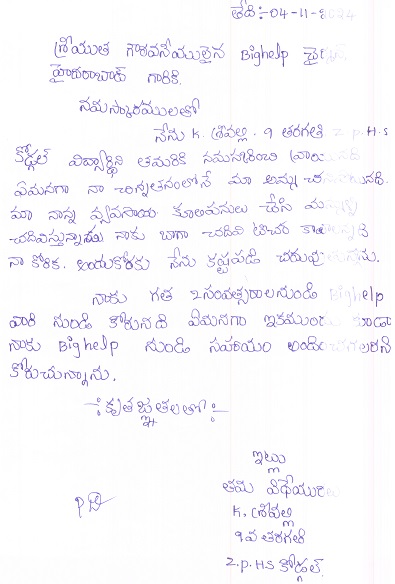 తేది:-04-11-2024
శ్రీయుత గౌరవనీయులైన Bighelp
హైదరాబాద్ గారికి.
నమస్కారములతో
నేను K. శ్రీవల్లి. 9 తరగతి Z.p.H.s
కోడ్గల్ విద్యార్థిని తమరికి నమస్కరించి వ్రాయునది
ఏమనగా నా చిన్నతనంలోనే మా అమ్మ
మా నాన్న వ్యవసాయ కూలిపనులు చేసి
చదివిస్తున్నాడు నాకు బాగా చదివి టీచర్
నా కోరిక. అందుకొరకు నేను కష్టపడి
నాకు గత 2సంవత్సరాలనుండి Bighelp
వారి నుండి కోరునది ఏమనగా ఇకముందు కూడా
నాకు Bighelp నుండి సహాయం
కోరుచున్నాను.
-: కృతజ్ఞతలతో :-
ఇట్లు
తమ విధేయురాలు
K. శ్రీవల్లి
9వ తరగతి
Z.p.HS కోడ్గల్.